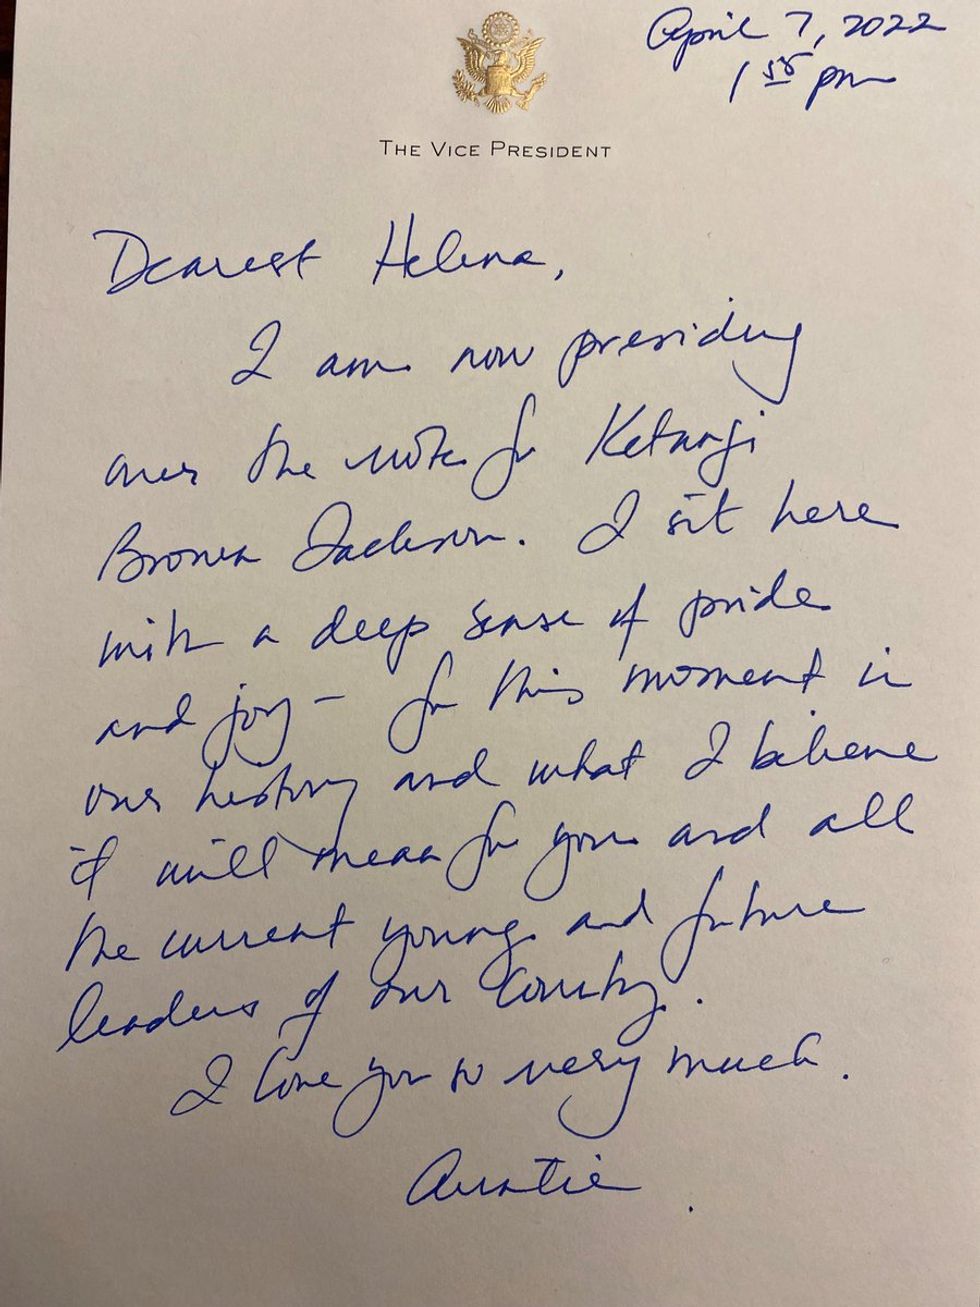 April 7, 2022
1 58 pm
THE VICE PRESIDENT
Dearest Helena,
I am now presiding
over the vote for Ketanji
Brown Jackson. I sit here
with a deep sense of pride
and joy – for this moment in
our history and what I believe
it will mean for you and all
the current young and future
leaders of our country.
I love you so very much.
Auntie.